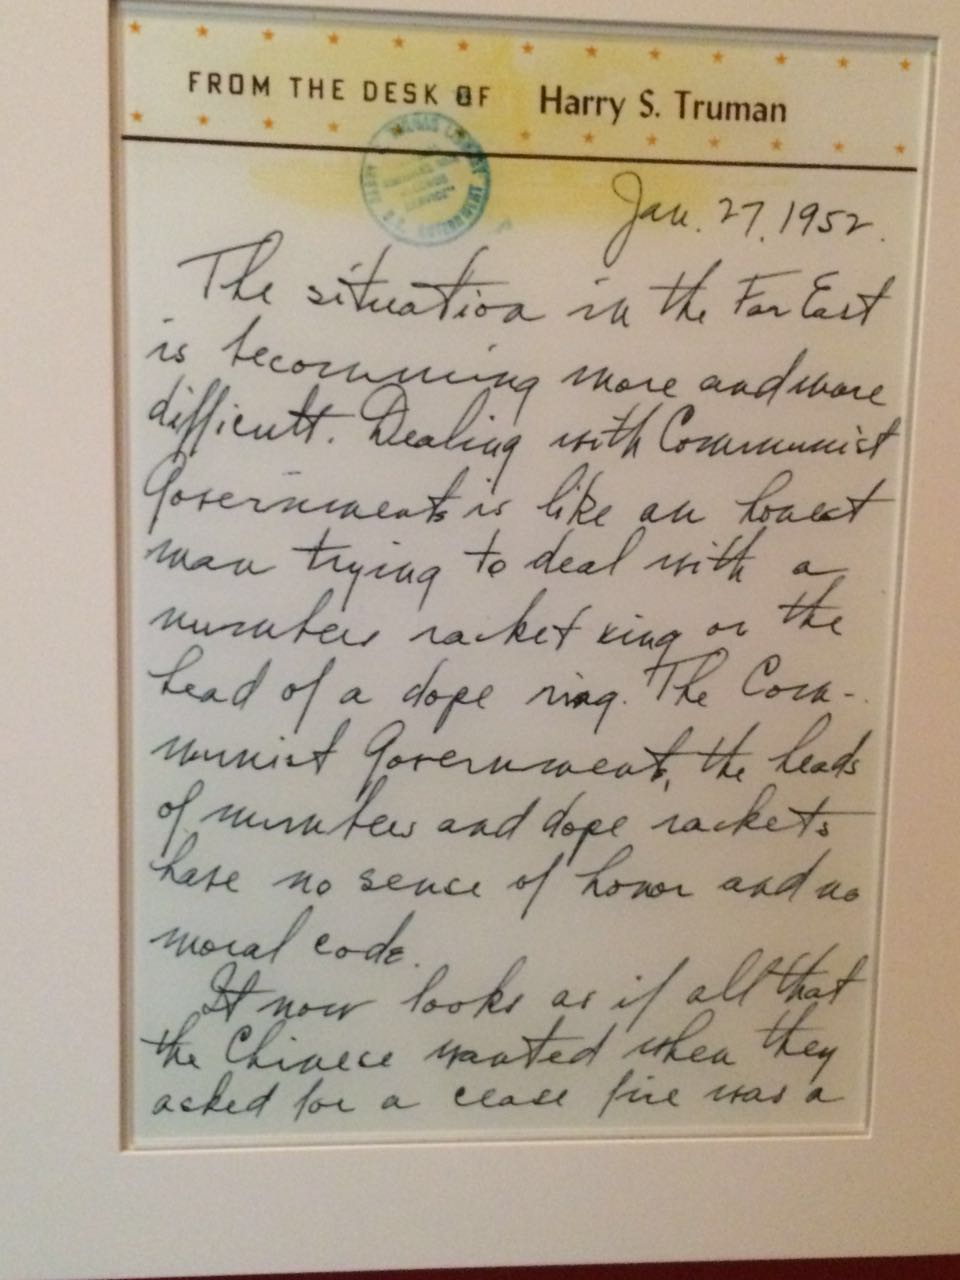 FROM THE DESK OF Harry S. Truman
Jan. 27, 1952.
The situation in the Far East
is becomming more and more
difficult. Dealing with Communist
Governments is like an honest
man trying to deal with a
numbers racket king or the
head of a dope ring. The Com-
munist Government, the heads
of numbers and dope rackets
have no sense of honor and no
moral code.
It now looks as if all that
the Chinese wanted when they
asked for a cease fire was a